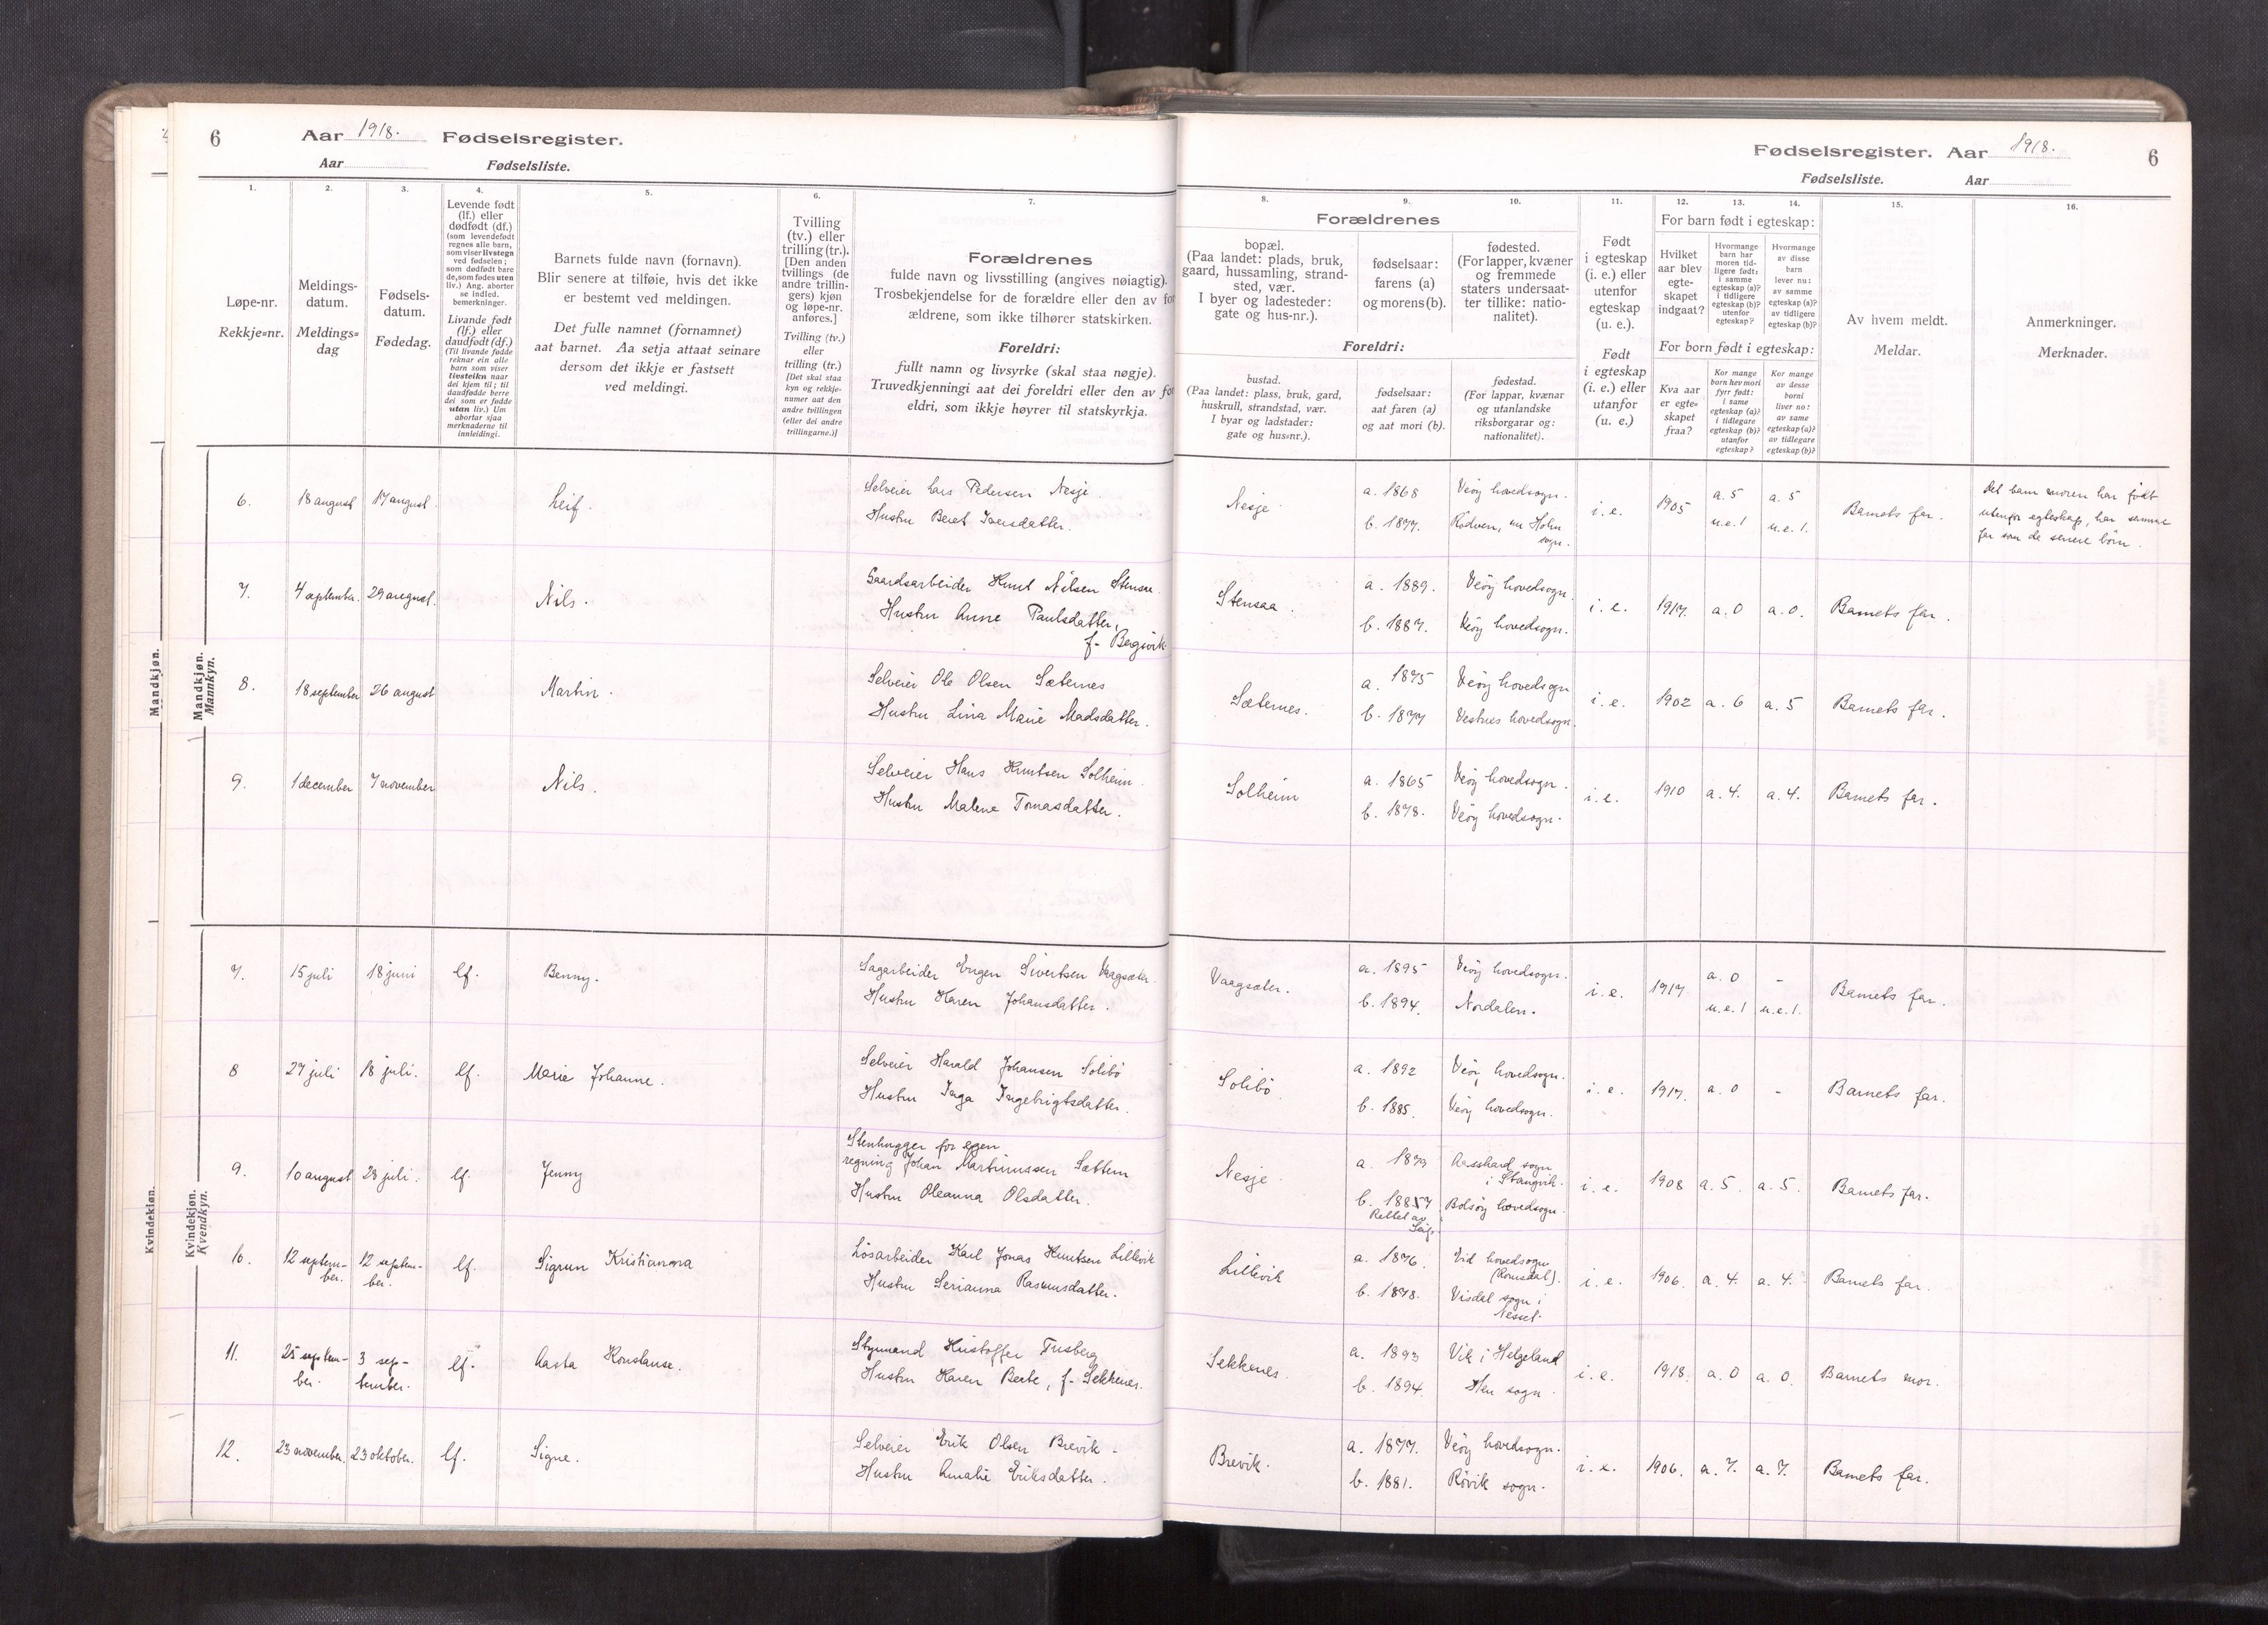 6
Aar 1918. Fødselsregister.
Aar Fødselsliste.
Fødselsregister. Aar 1918.
6
Fødselsliste. Aar
1.
Løpe-nr.
Rekkje=nr.
2.
Meldings-
datum.
Meldings=
dag
3.
Fødsels-
datum.
Fødedag.
4.
Levende født
(lf.) eller
dødfødt (df.)
(som levendefødt
regnes alle barn,
som viser livstegn
ved fødselen;
som dødfødt bare
de, som fødes uten
liv.) Ang. aborter
se indled.
bemerkninger.
Livande født
(lf.) eller
daudfødt (df.)
(Til livande fødde
reknar ein alle
barn som viser
livsteikn naar
dei kjem til; til
daudfødde berre
dei som er fødde
utan liv.) Um
abortar sjaa
merknaderne til
innleidingi.
5.
Barnets fulde navn (fornavn).
Blir senere at tilføie, hvis det ikke
er bestemt ved meldingen.
Det fulle namnet (fornamnet)
aat barnet. Aa setja attaat seinare
dersom det ikkje er fastsett
ved meldingi.
6.
Tvilling
(tv.) eller
trilling (tr.).
[Den anden
tvillings (de
andre trillin-
gers) kjøn
og løpe-nr.
anføres.]
Tvilling (tv.)
eller
trilling (tr.)
[Det skal staa
kyn og rekkje-
numer aat den
andre tvillingen
(eller dei andre
trillingarne.)]
7.
Forældrenes
fulde navn og livsstilling (angives nøiagtig).
Trosbekjendelse for de forældre eller den av for
ældrene, som ikke tilhører statskirken.
Foreldri:
fullt namn og livsyrke (skal staa nøgje).
Truvedkjenningi aat dei foreldri eller den av for
eldri, som ikkje høyrer til statskyrkja.
Forældrenes
8.
bopæl.
(Paa landet: plads, bruk,
gaard, hussamling, strand-
sted, vær.
I byer og ladesteder:
gate og hus-nr.).
9.
fødselsaar:
farens (a)
og morens (b).
10.
fødested.
(For lapper, kvæner
og fremmede
staters undersaat-
ter tillike: natio-
nalitet).
Foreldri:
bustad.
(Paa landet: plass, bruk, gard,
huskrull, strandstad, vær.
I byar og ladstader:
gate og hus=nr.).
fødselsaar:
aat faren (a)
og aat mori (b).
fødestad.
(For lappar, kvænar
og utanlandske
riksborgarar og:
nationalitet).
11.
Født
i egteskap
(i. e.) eller
utenfor
egteskap
(u. e.).
Født
i egteskap
(i. e.) eller
utanfor
(u. e.)
12. 13. 14.
For barn født i egteskap:
Hvilket
aar blev
egte-
skapet
indgaat?
Hvormange
barn har
moren tid-
ligere født:
i samme
egteskap (a)?
i tidligere
egteskap (b)?
utenfor
egteskap?
Hvormange
av disse
barn
lever nu:
av samme
egteskap (a)?
av tidligere
egteskap (b)?
For born født i egteskap:
Kva aar
er egte=
skapet
fraa?
Kor mange
born hev mori
fyrr født:
i same
egteskap (a)?
i tidlegare
egteskap (b)?
utanfor
egteskap?
Kor mange
av desse
borni
liver no:
av same
egteskap (a)?
av tidlegare
egteskap (b)?
15.
Av hvem meldt.
Meldar.
16.
Anmerkninger.
Merknader.
Mandkjøn.
Mandkjøn.
Mannkyn.
6. 18 august 17 august. Leif. Selveier Lars Pedersen Nesje. Nesje a. 1868 Veøy hovedsogn. i. e. 1905 a. 5 a. 5 Barnets far. Det barn moren har født
Hustru Beret Iversdatter. b. 1877. Rødven, nu Holm sogn. u.e. 1 u.e. 1. utenfor egteskap, har samme
far som de senere børn.
7. 4 september. 29 august. Nils. Gaardsarbeider Knut Nilsen Stensaa. Stensaa. a. 1889. Veøy hovedsogn. i. e. 1917. a. 0 a. 0. Barnets far.
Hustru Anne Paulsdatter, b. 1887. Veøy hovedsogn.
8. 18 september 26 august Martin. Selveier Ole Olsen Sæternes Sæternes. a. 1875 Veøy hovedsogn i. e. 1902 a. 6 a. 5 Barnets far.
Hustru Lina Marie Madsdatter. b. 1877 Vestnes hovedsogn.
9. 1 december 7 november Nils. Selveier Hans Knutsen Solheim. Solheim a. 1865 Veøy hovedsogn. i. e. 1910 a. 4. a. 4. Barnets far.
Hustru Malene Tomasdatter. b. 1878. Veøy hovedsogn.
Kvindekjøn.
Kvindekjøn.
Kvendkyn.
7. 15 juli 18 juni lf. Benny. Sagarbeider Eugen Sivertsen Vaagsæter. Vaagsæter. a. 1895 Veøy hovedsogn. i. e. 1917 a. 0 - Barnets far.
Hustru Karen Johansdatter. b. 1894. Nordalen. u.e. 1 u.e. 1.
8 27 juli 18 juli. lf. Marie Johanne. Selveier Harald Johansen Solibö Solibö. a. 1892 Veöy hovedsogn. i. e. 1917. a. 0 - Barnets far.
Hustru Inga Ingebrigtsdatter. b. 1885. Veöy hovedsogn.
Stenhugger for egen
9. 10 august 28 juli. lf. Jenny regning Johan Martinussen Sættem Nesje. a. 1879 Aasskard sogn i Stangvik. i. e. 1908 a. 5. a. 5. Barnets far.
Hustru Oleanna Olsdatter. b. 1887 Bolsøy hovedsogn.
Rettet av
10. 12 septem-
ber. 12 septem-
ber. lf. Sigrun Kristianna Løsarbeider Karl Jonas Knutsen Lillevik Lillevik a. 1876. Eid hovedsogn (Romsdal). i. e. 1906. a. 4. a. 4. Barnets far.
Hustru Serianna Rasmusdatter. b. 1878. Visdal sogn i Nesset.
11. 25 septem-
ber. 3 sep-
tember. lf. Aasta Konstanse. Styrmand Kristoffer Trisberg Sekkenes. a. 1893 Vik i Helgeland i. e. 1918. a. 0 a. 0. Barnets mor.
Hustru Karen Berte, f. Sekkenes. b. 1894. Hen sogn.
12. 23 november. 23 oktober. lf. Signe. Selveier Erik Olsen Brevik. Brevik. a. 1877. Veøy hovedsogn. i. e. 1906. a. 7. a. 7. Barnets far.
Hustru Amalie Eriksdatter. b. 1881. Røvik sogn.